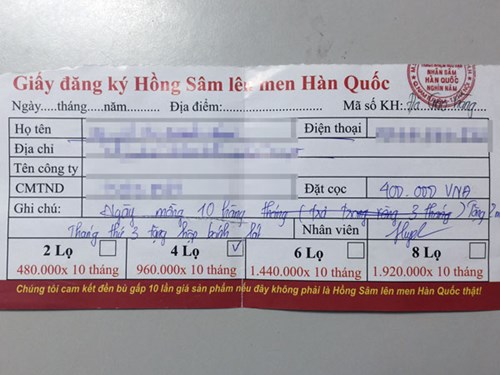 Giấy đăng ký Hồng Sâm lên men Hàn Quốc
NHÂN SÂM
HÀN QUỐC
NGHÌN NĂM
Ngày....tháng....năm.......... Địa điểm:........................ Mã số KH:
Họ tên Điện thoại
Địa chỉ
Tên công ty
CMTND Đặt cọc 400.000 VNA
Ghi chú: Ngày mồng 10 hàng tháng (trả trong vòng 3 tháng) Tặng
Tháng thứ 3 tặng hộp bánh Nhân viên
2 Lọ 4 Lọ 6 Lọ 8 Lọ
480.000x 10 tháng 960.000x 10 tháng 1.440.000x 10 tháng 1.920.000x 10 tháng
Chúng tôi cam kết đền bù gấp 10 lần giá sản phẩm nếu đây không phải là Hồng Sâm lên men Hàn Quốc thật!